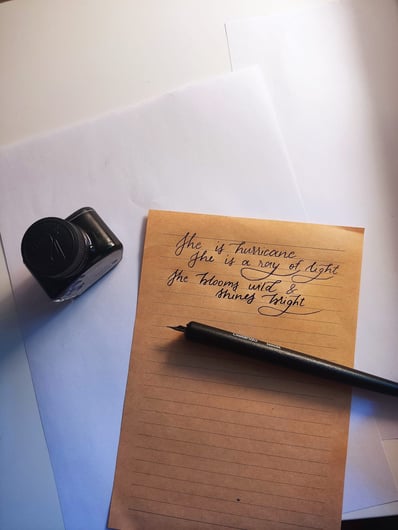 She is hurricane
She is a ray of light
She blooms wild &
shines bright